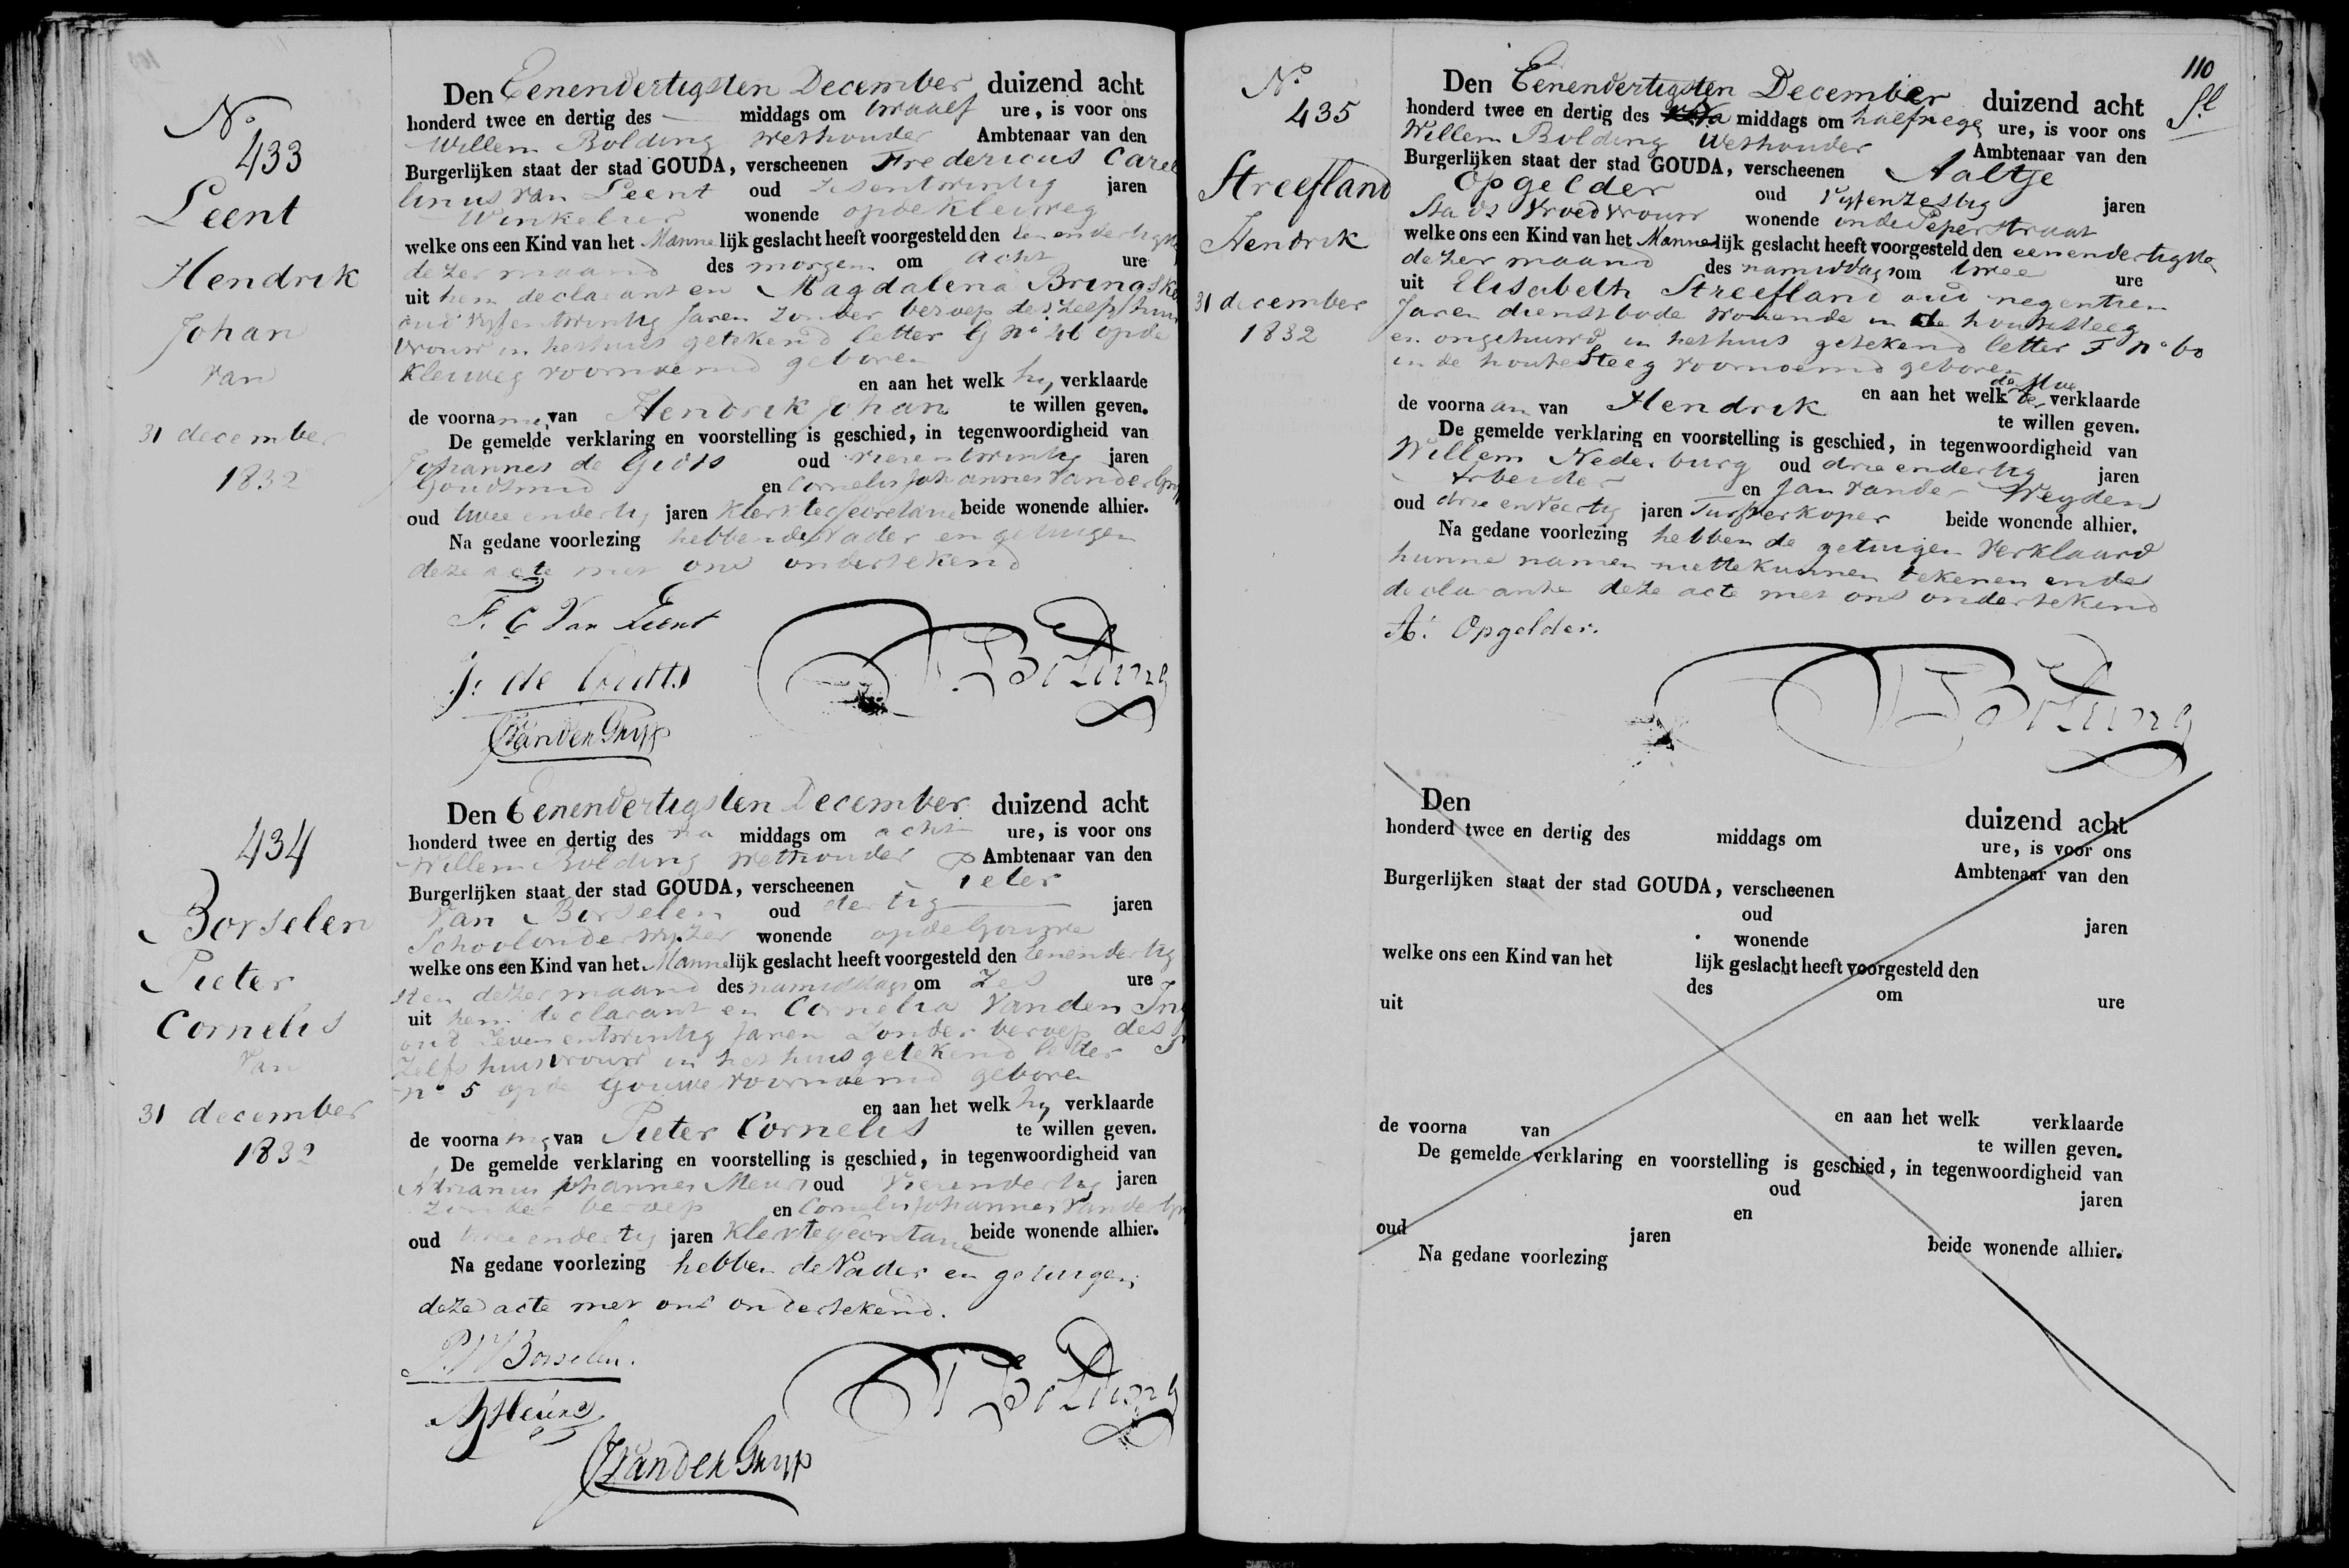 No.
433
Leent
Hendrik
Johan
van
31 december
1832
Den Eenendertigsten December duizend acht
honderd twee en dertig des — middags om twaalf ure, is voor ons
Willem Bolding Wethouder Ambtenaar van den
Burgerlijken staat der stad GOUDA, verscheenen Fredericus Carel
linus van Leent oud zesentwintig jaren
Winkelier wonende op de Kleiweg
welke ons een Kind van het Mannelijk geslacht heeft voorgesteld den eenendertigste
dezer maand des morgens om acht ure
uit hem declarant en Magdalena
oud vyfentwintig Jaren zonder beroep deszelfs huis
vrouw in het huis getekend letter G no 46 op de
Kleiweg voornoemd geboren
en aan het welk hy verklaarde
de voorna men van Hendrik Johan te willen geven.
De gemelde verklaring en voorstelling is geschied, in tegenwoordigheid van
Johannes de oud vierentwintig jaren
Goudsmid en Cornelis Johannes van der Gryp
oud twee endertig jaren Klerk ter Secretarie beide wonende alhier.
Na gedane voorlezing hebben de Vader en getuigen
deze acte met ons ondertekend
F. C. Van Leent
J: de
W Bolding
CJ van der Gryp
434
Borselen
Pieter
Cornelis
van
31 december
1832
Den Eenendertigsten December duizend acht
honderd twee en dertig des na middags om acht ure, is voor ons
Willem Bolding Wethouder Ambtenaar van den
Burgerlijken staat der stad GOUDA, verscheenen Pieter
Van Borselen oud dertig jaren
Schoolonderwyzer wonende op de Gouwe
welke ons een Kind van het Mannelijk geslacht heeft voorgesteld den Eenendertig
sten dezer maand des namiddags om zes ure
uit hem declarant en Cornelia Van den
oud zevenentwintig Jaren zonder beroep des
zelfs huisvrouw in het huis getekend letter
no 5 op de Gouwe voornoemd geboren
en aan het welk hy verklaarde
de voorna men van Pieter Cornelis te willen geven.
De gemelde verklaring en voorstelling is geschied, in tegenwoordigheid van
Adrianus Johannes Meurs oud vierendertig jaren
zonder beroep en Cornelis Johannes van der Gryp
oud twee endertig jaren Klerk ter Secretarie beide wonende alhier.
Na gedane voorlezing hebben de Vader en getuigen
deze acte met ons ondertekend.
P. V Borselen.
AJ Meurs
W Bolding
CJ van der Gryp
110
No.
435
Streefland
Hendrik
31 december
1832
Den Eenendertigsten December duizend acht
honderd twee en dertig des middags om halfnege ure, is voor ons
Willem Bolding Wethouder Ambtenaar van den
Burgerlijken staat der stad GOUDA, verscheenen Aaltje
Opgelder oud vyfenzestig jaren
Stads Vroedvrouw wonende in de Peperstraat
welke ons een Kind van het Mannelijk geslacht heeft voorgesteld den eenendertigste
dezer maand des namiddags om twee ure
uit Elisabeth Streefland oud negentien
Jaren dienstbode wonende in de houtesteeg
en ongehuwd in het huis getekend letter F no 60
in de houtesteeg voornoemd geboren
en aan het welk verklaarde
de voorna am van Hendrik te willen geven.
De gemelde verklaring en voorstelling is geschied, in tegenwoordigheid van
Willem Nederburg oud drie endertig jaren
Arbeider en Jan van der Weyden
oud drie enveertig jaren Turfverkoper beide wonende alhier.
Na gedane voorlezing hebben de getuigen verklaard
hunne namen niet te kunnen tekenen en de
declarante deze acte met ons ondertekend
A: Opgelder.
W Bolding
Den duizend acht
honderd twee en dertig des middags om ure, is voor ons
Ambtenaar van den
Burgerlijken staat der stad GOUDA, verscheenen
oud jaren
wonende
welke ons een Kind van het lijk geslacht heeft voorgesteld den
des om ure
uit
en aan het welk verklaarde
de voorna van te willen geven.
De gemelde verklaring en voorstelling is geschied, in tegenwoordigheid van
oud jaren
en
oud jaren beide wonende alhier.
Na gedane voorlezing